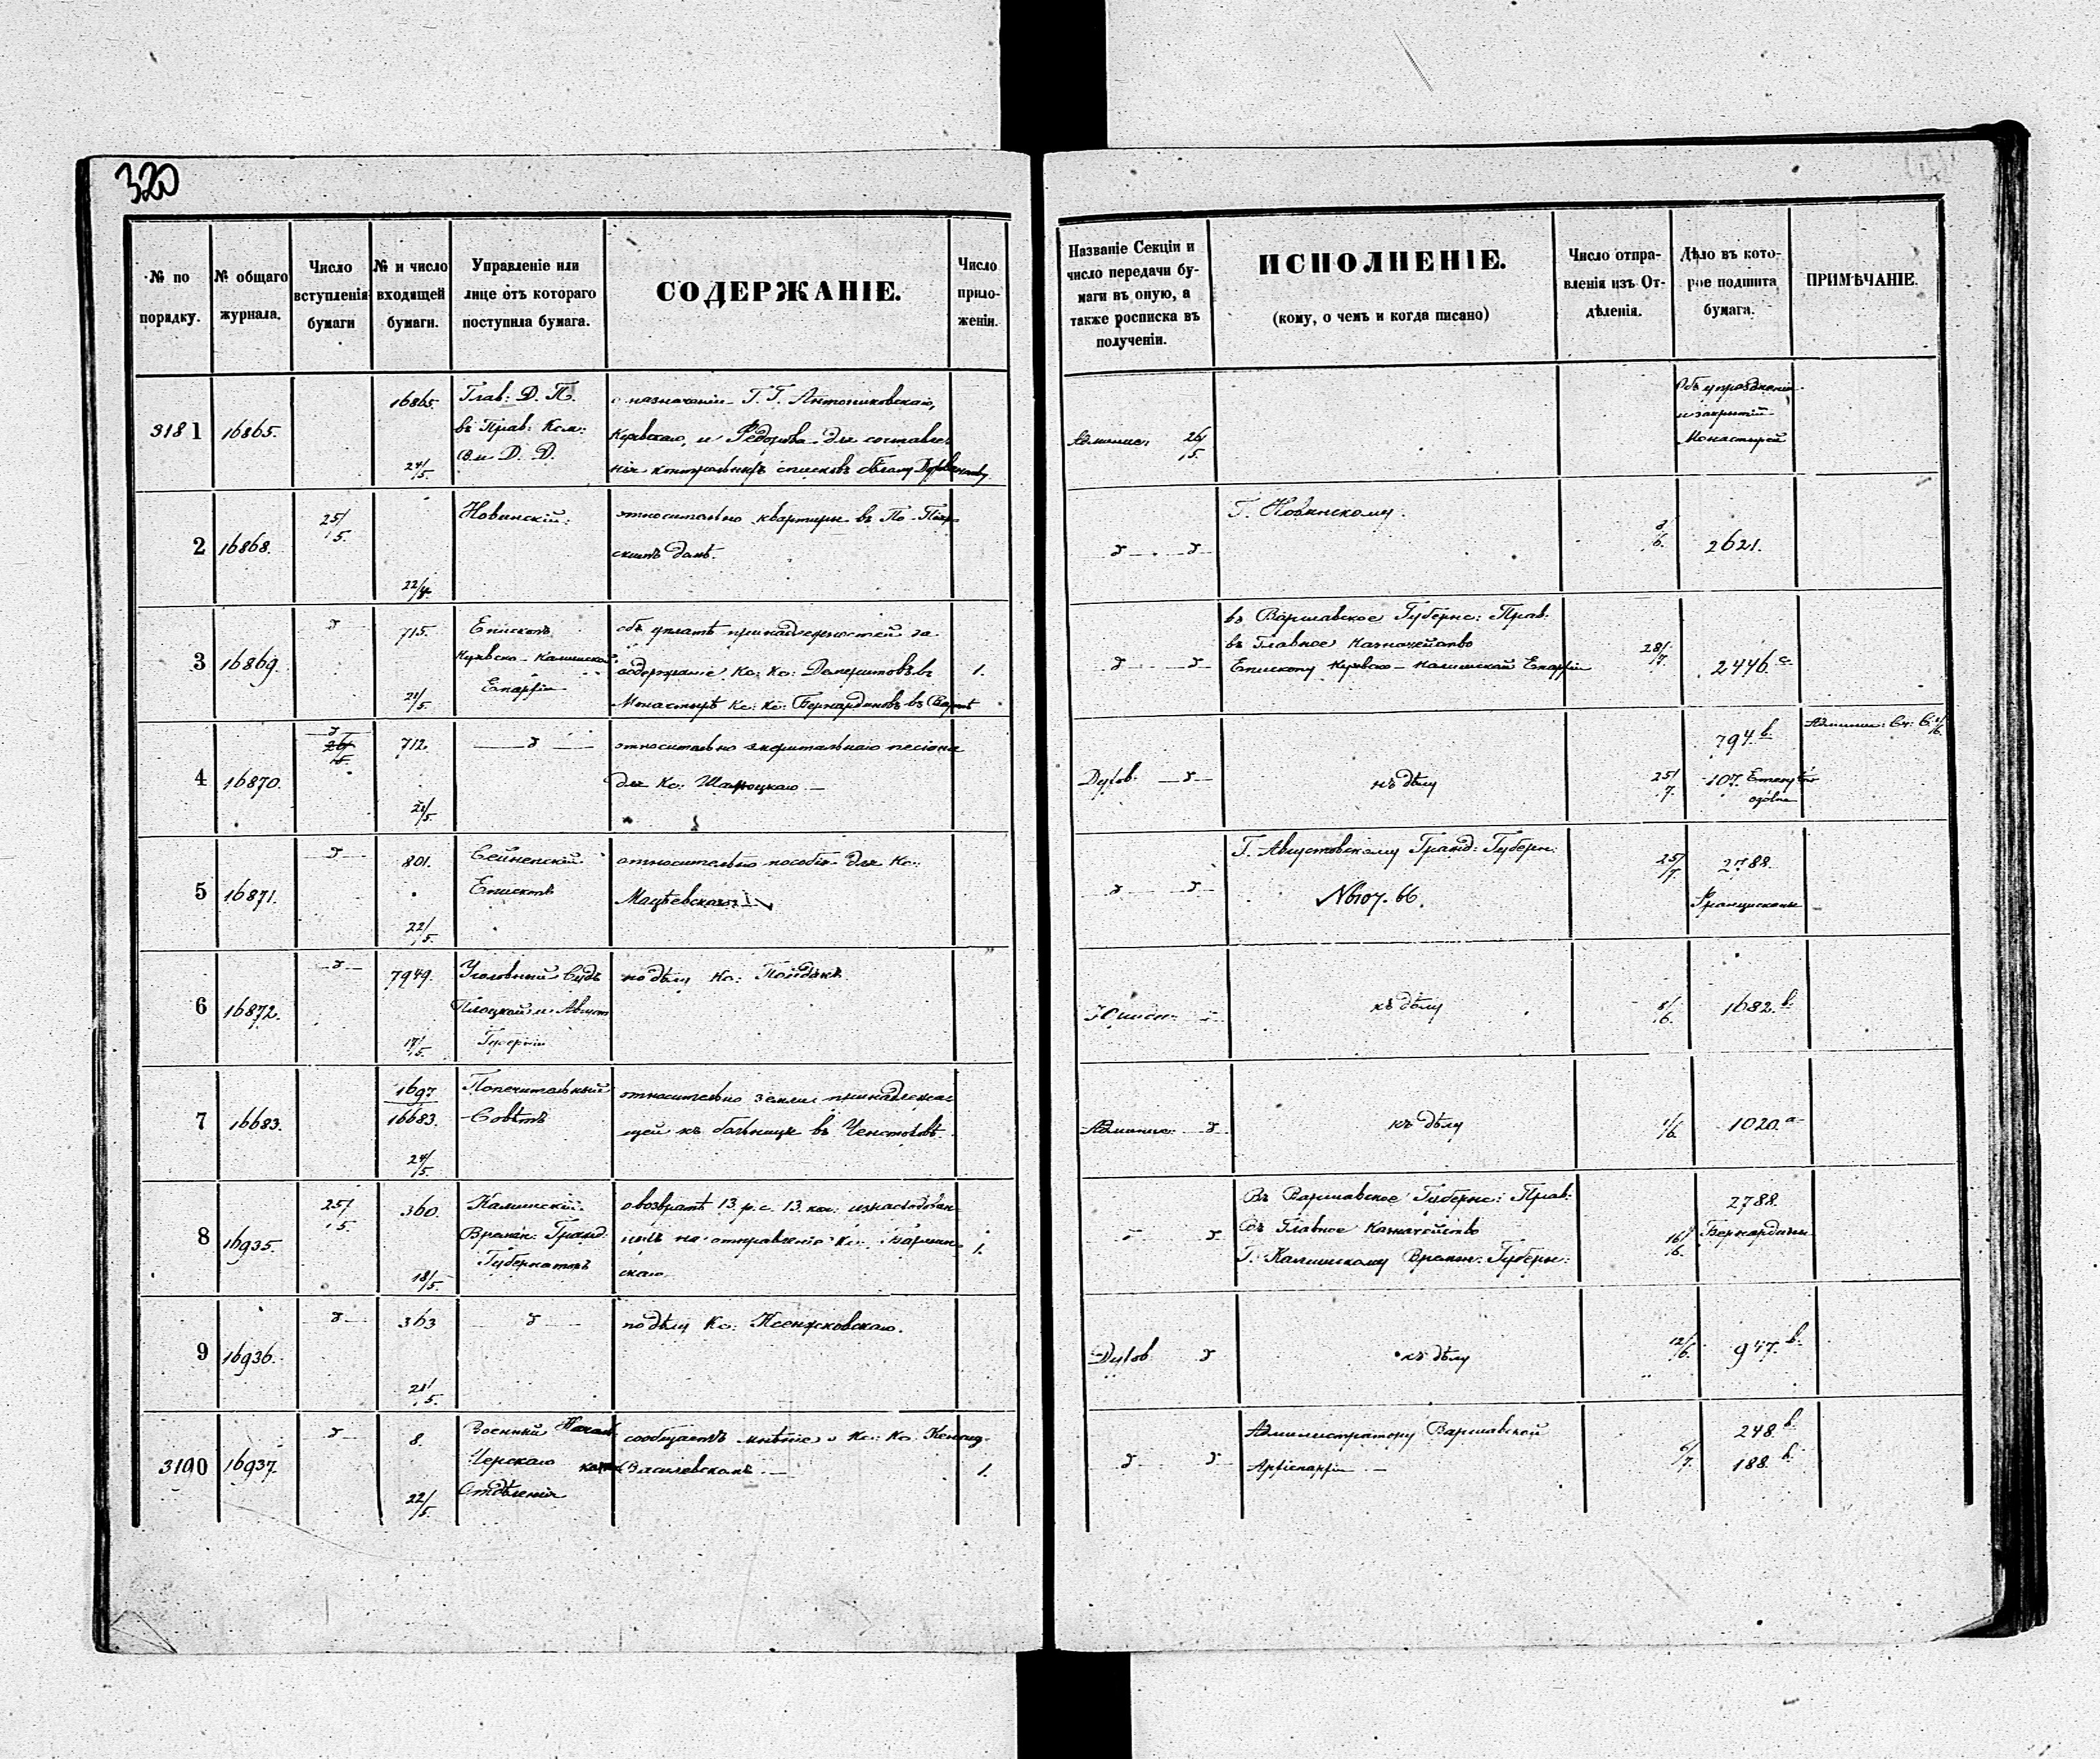 320
№ по порядку.
№ общаго журнала.
Число вступленія бумаги
№ и число входящей бумаги.
Управленіе или лице отъ котораго поступила бумага.
СОДЕРЖАНІЕ.
Число приложеніи.
Названіе Секціи и число передачи бумаги въ оную, а также росписка въ полученіи.
ИСПОЛНЕНІЕ.
(кому, о чемъ и когда писано)
Число отправленія изъ Отдѣленія.
Дѣло въ которое подшита бумага.
ПРИМѢЧАНІЕ.
3181
16865.
16865.
24/5.
Глав: Д. П.
въ Прав: Ком:
В. и Д. Д.
о назначеніи Г. Г. Антониковскаго,
и Федорова для составле
нія списковъ
Админис: 26/5.
Объ упраздненіи
и закрытій
Монастырей
2
16868.
25/5.
Новинскій:
относительно квартиры въ
скомъ домѣ.
Г. Новинскому.
2621.
3
16869.
715.
21/5.
Епископъ
Куявско-Калишской
Епархіи
объ уплатѣ принадлежностей за
содержаніе Кс: Кс: въ
Монастырѣ Кс: Кс: Бернардиновъ въ Вартѣ
1.
въ Варшавское Губернс: Прав.
въ Главное Казначейство
Епископу Куявско-Калишской Епархіи
28/7.
2446.
4
16870.
712.
21/5.
относительно
для Кс:
Духов.
къ дѣлу
25/7.
794.b.
107.
5
16871.
801.
22/5.
Сейненскій
Епископъ
относительно пособія для Кс:
Мацѣевскаго
Г. Августовскому Гражд: Губерн:
№ 107. 66.
25/7.
2788.
Францискане
6
16872.
7949.
17/5.
Уголовный Судъ
Плоцкой и Август
Губерніи
по дѣлу Кс:
къ дѣлу
8/6.
1682.b.
7
16683.
1697
16683.
24/5.
Попечительный
Совѣтъ
относительно земли принадлежа
щей къ больницѣ въ Ченстоховѣ.
Админис:
къ дѣлу
1/6.
1020.a
8
16935.
25/5.
360.
18/5.
Калишскій
Времен: Гражд:
Губернаторъ
о возвратѣ 13 р. с. 13 ко:
на отправленіе Кс:
скаго
1.
Въ Варшавское Губернс: Прав:
Въ Главное Казначейство
Г. Калишскому Времен: Губерн:
16/6.
2788.
Бернардины
9
16936.
363
21/5.
по дѣлу Кс: Ксенжковскаго.
Духов
къ дѣлу
12/6.
947.b.
3190
16937
8.
22/5.
Военный Начал
Черскаго
Отдѣленія
сообщаетъ мнѣніе о Кс: Кс:
Василевскомъ.
1.
Администратору Варшавской
Архіепархіи
248 b
188. b.